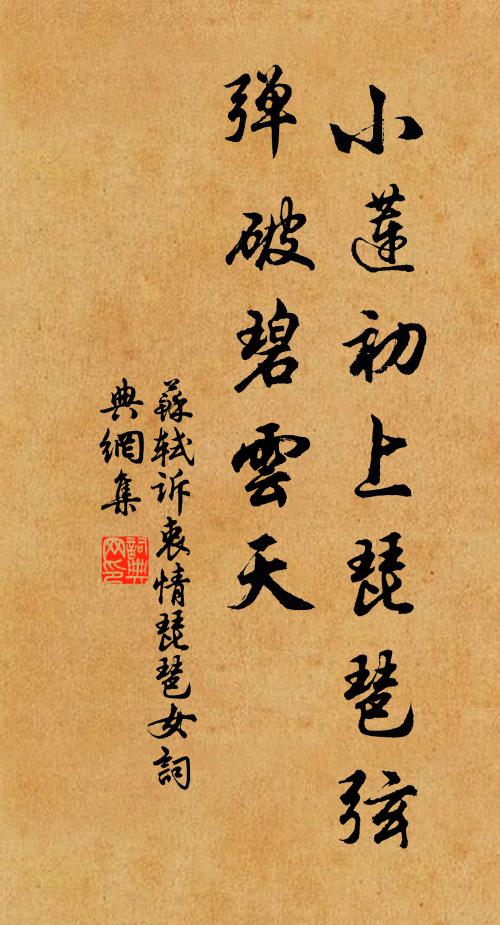 小蓮初上琵琶弦
彈破碧雲天
蘇軾訴衷情琵琶女詞
典網集
詞典網印